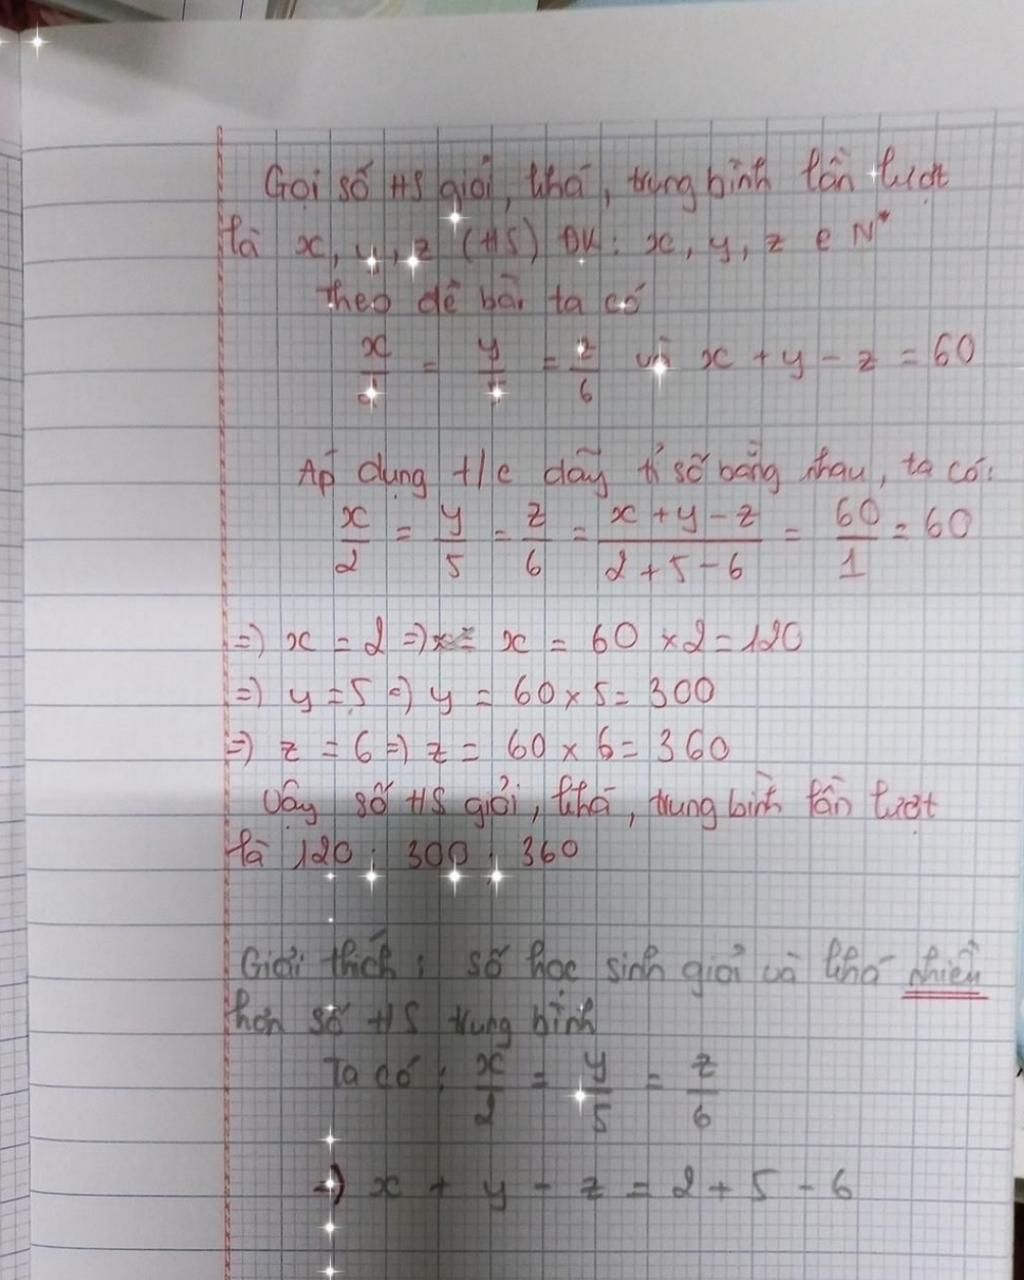 Gọi số HS giỏi, khá, trung bình lần lượt
là x, y, z (HS) ĐK: x, y, z e N*
Theo đề bài ta có
x/2 = y/5 = z/6 và x + y - z = 60
Áp dụng t/c dãy tỉ số bằng nhau, ta có:
x/2 = y/5 = z/6 = (x + y - z)/(2 + 5 - 6) = 60/1 = 60
=) x = 2 =) x = 60 × 2 = 120
=) y = 5 =) y = 60 × 5 = 300
=) z = 6 =) z = 60 × 6 = 360
Vậy số HS giỏi, khá, trung bình lần lượt
là 120 ; 300 ; 360
Giải thích : số học sinh giỏi và khá nhiều
hơn số HS trung bình
Ta có : x/2 = y/5 = z/6
=) x + y - z = 2 + 5 - 6